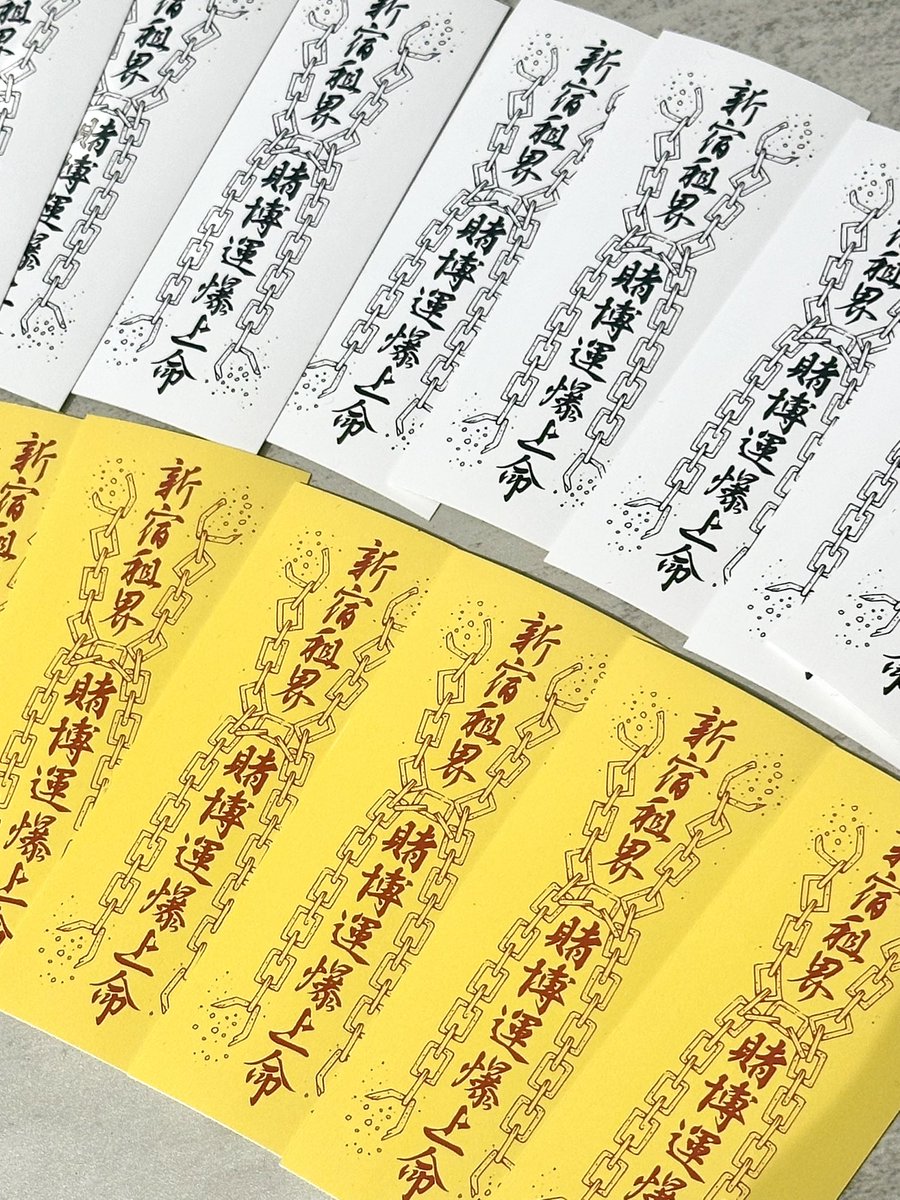 租界
賭博運爆上
新宿租界
賭博運爆上命
新宿租界
賭博運爆上命
新宿租界
賭博運爆上命
租界
賭博運爆上命
命
新宿租
新宿租界
賭博運爆上命
新宿租界
賭博運爆上命
新宿租界
賭博運爆上命
新宿租界
賭博運爆上命
宿租界
賭博運爆